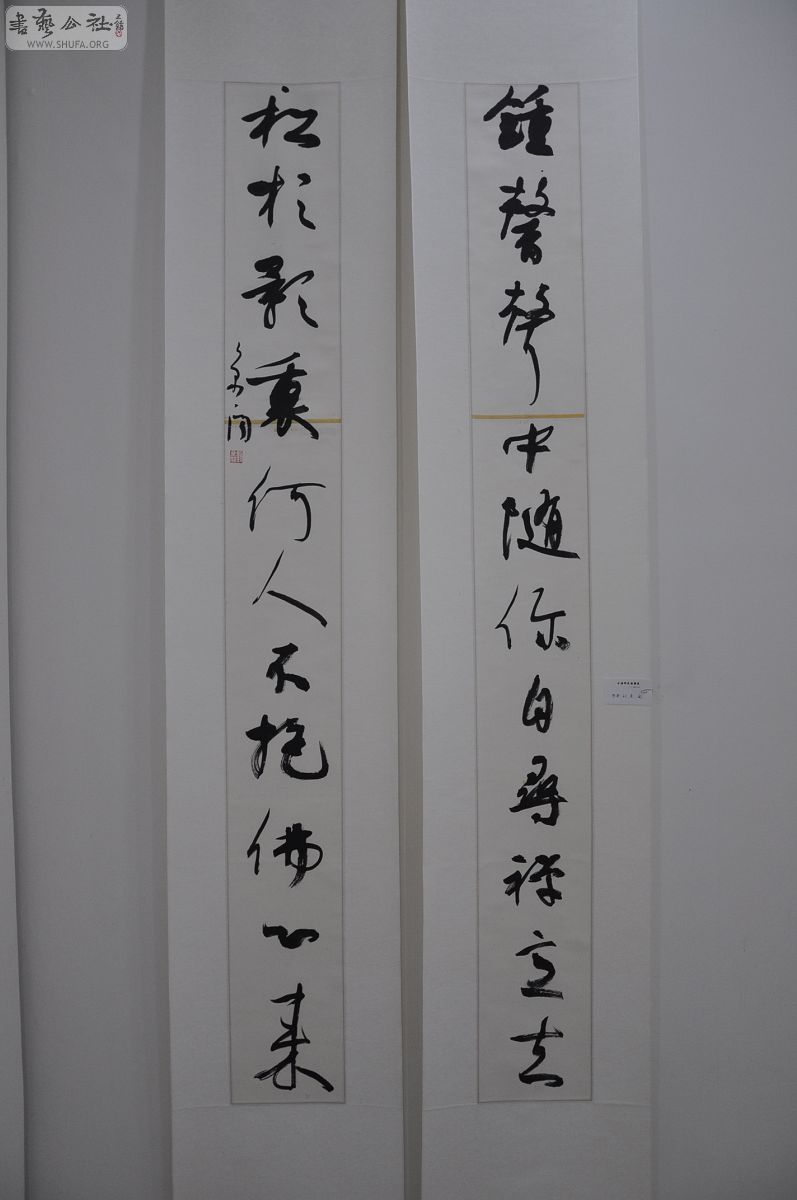 鍾磬聲中随你自尋禅立去
松杉影裏何人不抱佛心来
書藝公社
WWW.SHUFA.ORG